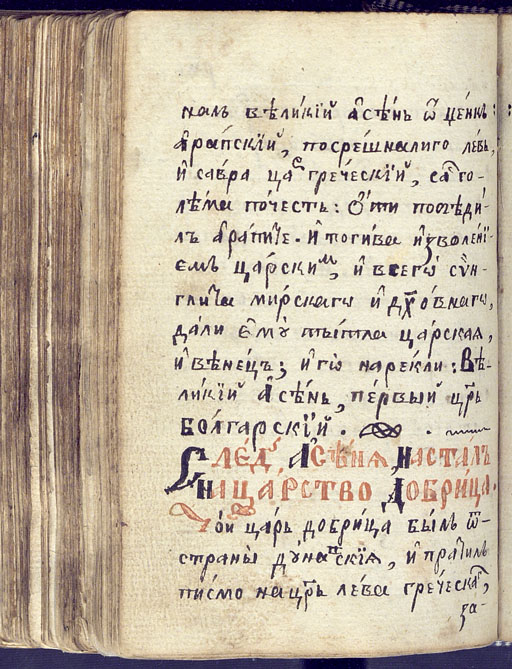 налъ вѣликїй Асѣнь ѿ ценкъ
Арапскїй, посрешналиго левь,
и савра цаⷬ҇ греческїй, саⷭ҇ го-
лѣма почесть: ѿти погѣди-
лъ арапиче. и тогива изволенї-
емъ царскиⷨ, и всегѡ сѵн-
глита мирскагѡ и дх҃овнагѡ,
дали емꙋ тытла царская,
и вѣнецъ; и гѡ нарекли: Вѣ-
ликїй Асѣнь, первый црь
болгарскїй.
След Асѣня, насталъ
нацарство Добрица.
Той царь добрица былъ ѿ-
страны дꙋнаⷡскїя, и пратилъ
писмо нацрь лева греческаⷢ,
за-